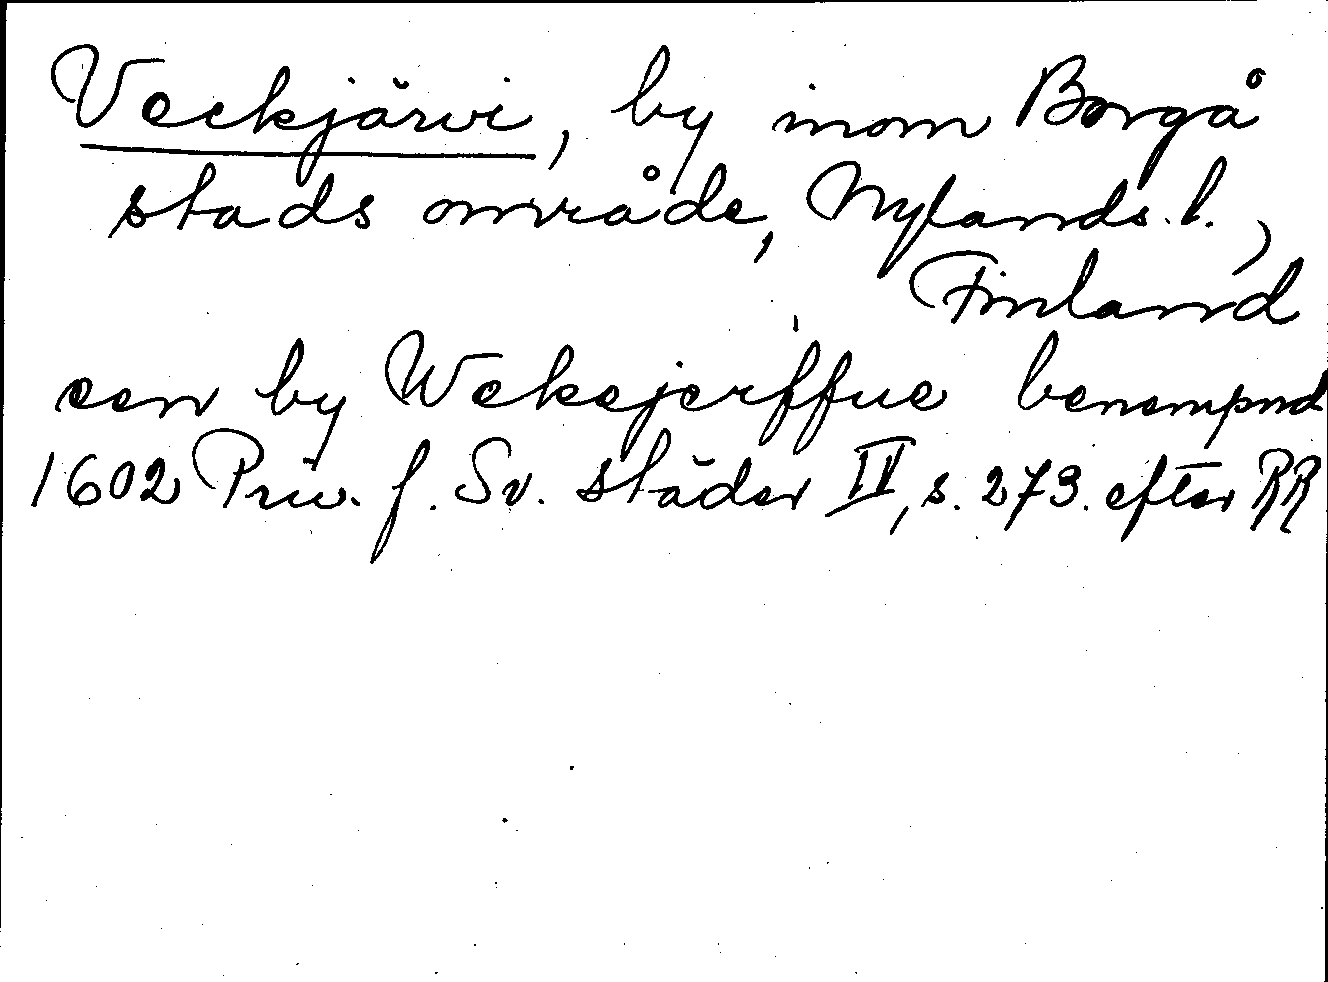 Veckjärvi, by inom Borgå
stads område, Nylands l.,
Finland
een by Wekejerffue benempnd
1602 Priv. f. Sv. städer II, s. 273. efter RR